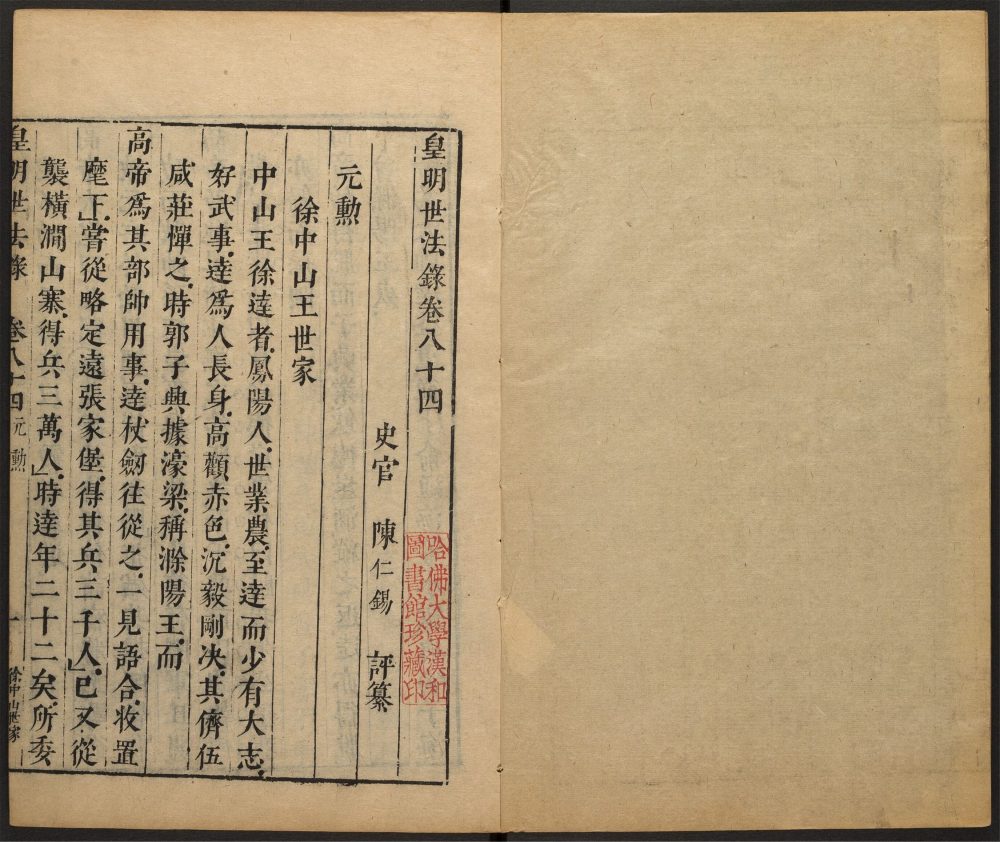 皇明世法錄卷八十四
史官 陳仁錫 評纂
哈佛大學漢和
圖書館珍藏印
元勳
徐中山王世家
中山王徐達者鳳陽人世業農至達而少有大志
好武事達爲人長身高顴赤色沉毅剛决其儕伍
咸莊憚之時郭子興據濠梁稱滁陽王而
高帝爲其部帥用事達杖劒往從之一見語合收置
麾下嘗從略定遠張家堡得其兵三千人已又從
襲橫澗山寨得兵三萬人時達年二十二矣所委
皇明世法錄 卷八十四 元勳 一 徐中山世家